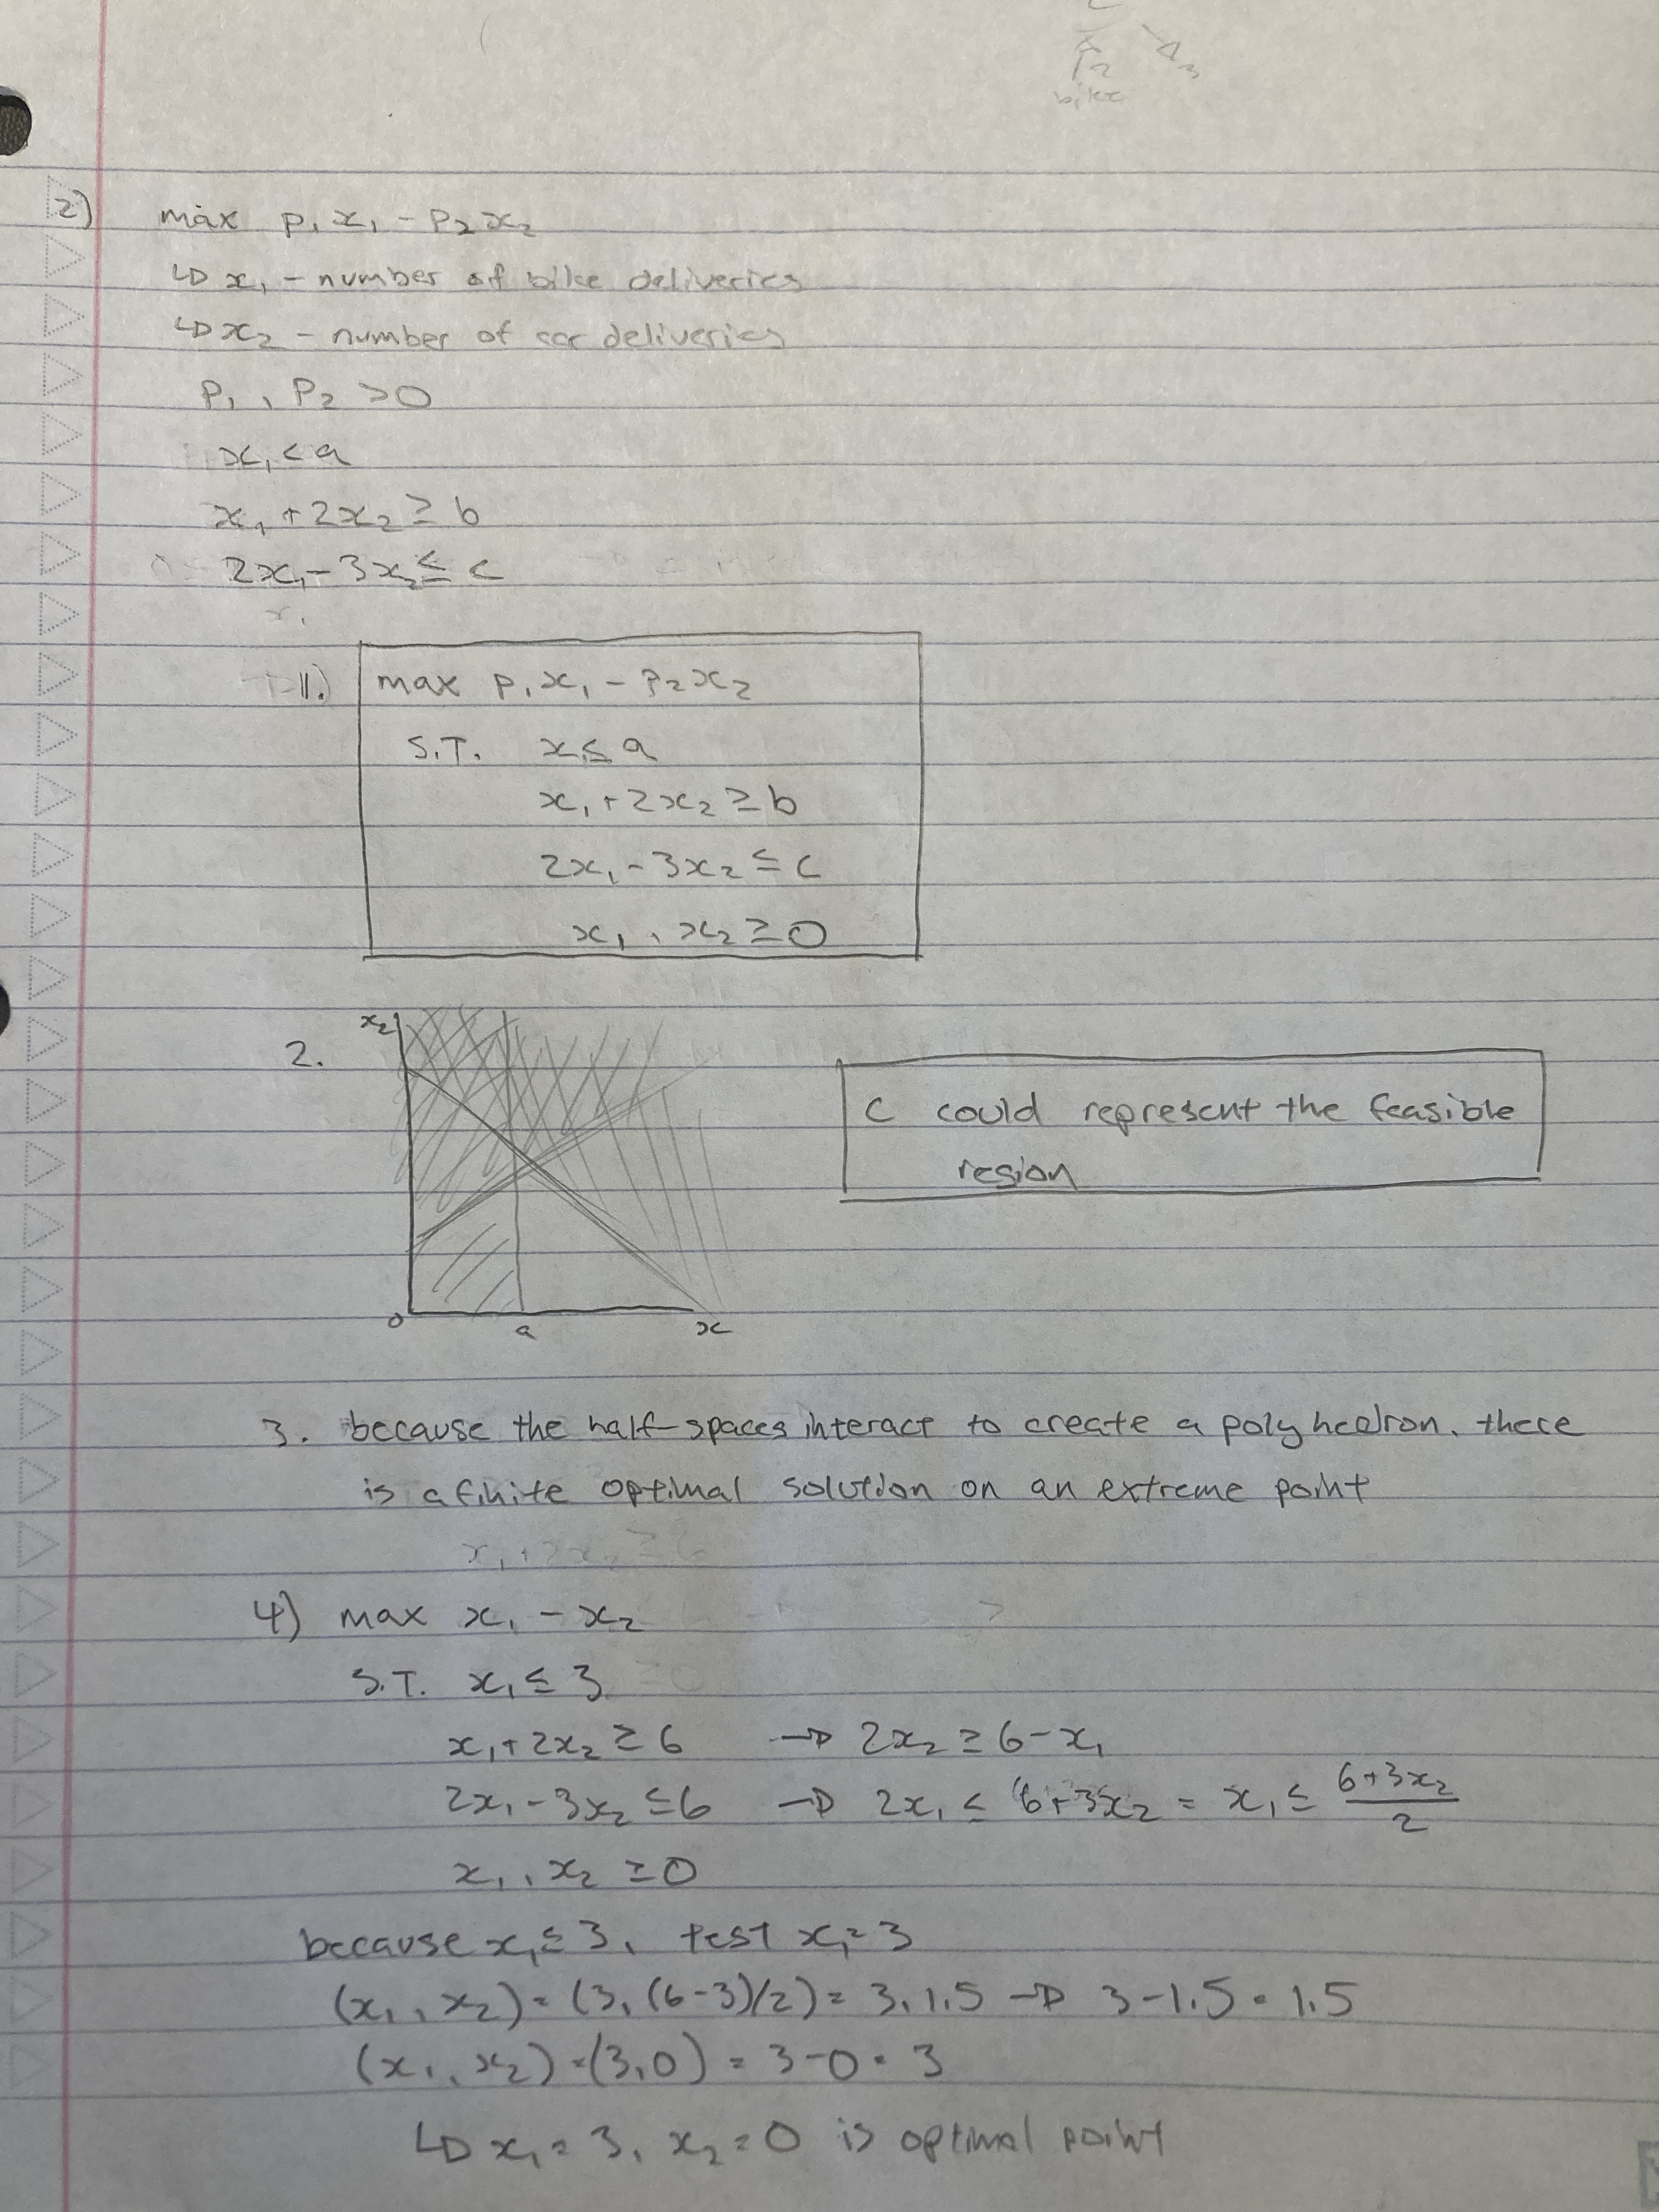 bike
2) max p₁x₁ - p₂x₂
↳ x₁ - number of bike deliveries
↳ x₂ - number of car deliveries
p₁, p₂ >0
x₁ < a
x₁ + 2x₂ ≥ b
2x₁ - 3x₂ ≤ c
1.) max p₁x₁ - p₂x₂
S.T. x₁ ≤ a
x₁ + 2x₂ ≥ b
2x₁ - 3x₂ ≤ c
x₁, x₂ ≥ 0
2.
x₂
0 a x
C could represent the feasible
region
3. because the half-spaces interact to create a polyhedron, there
is a finite optimal solution on an extreme point
4) max x₁ - x₂
S.T. x₁ ≤ 3
x₁ + 2x₂ ≥ 6 → 2x₂ ≥ 6 - x₁
2x₁ - 3x₂ ≤ 6 → 2x₁ ≤ 6 + 3x₂ = x₁ ≤ (6+3x₂)/2
x₁, x₂ ≥ 0
because x₁ ≤ 3, test x₁ = 3
(x₁, x₂) = (3, (6-3)/2) = 3, 1.5 → 3 - 1.5 = 1.5
(x₁, x₂) = (3, 0) = 3 - 0 = 3
↳ x₁ = 3, x₂ = 0 is optimal point